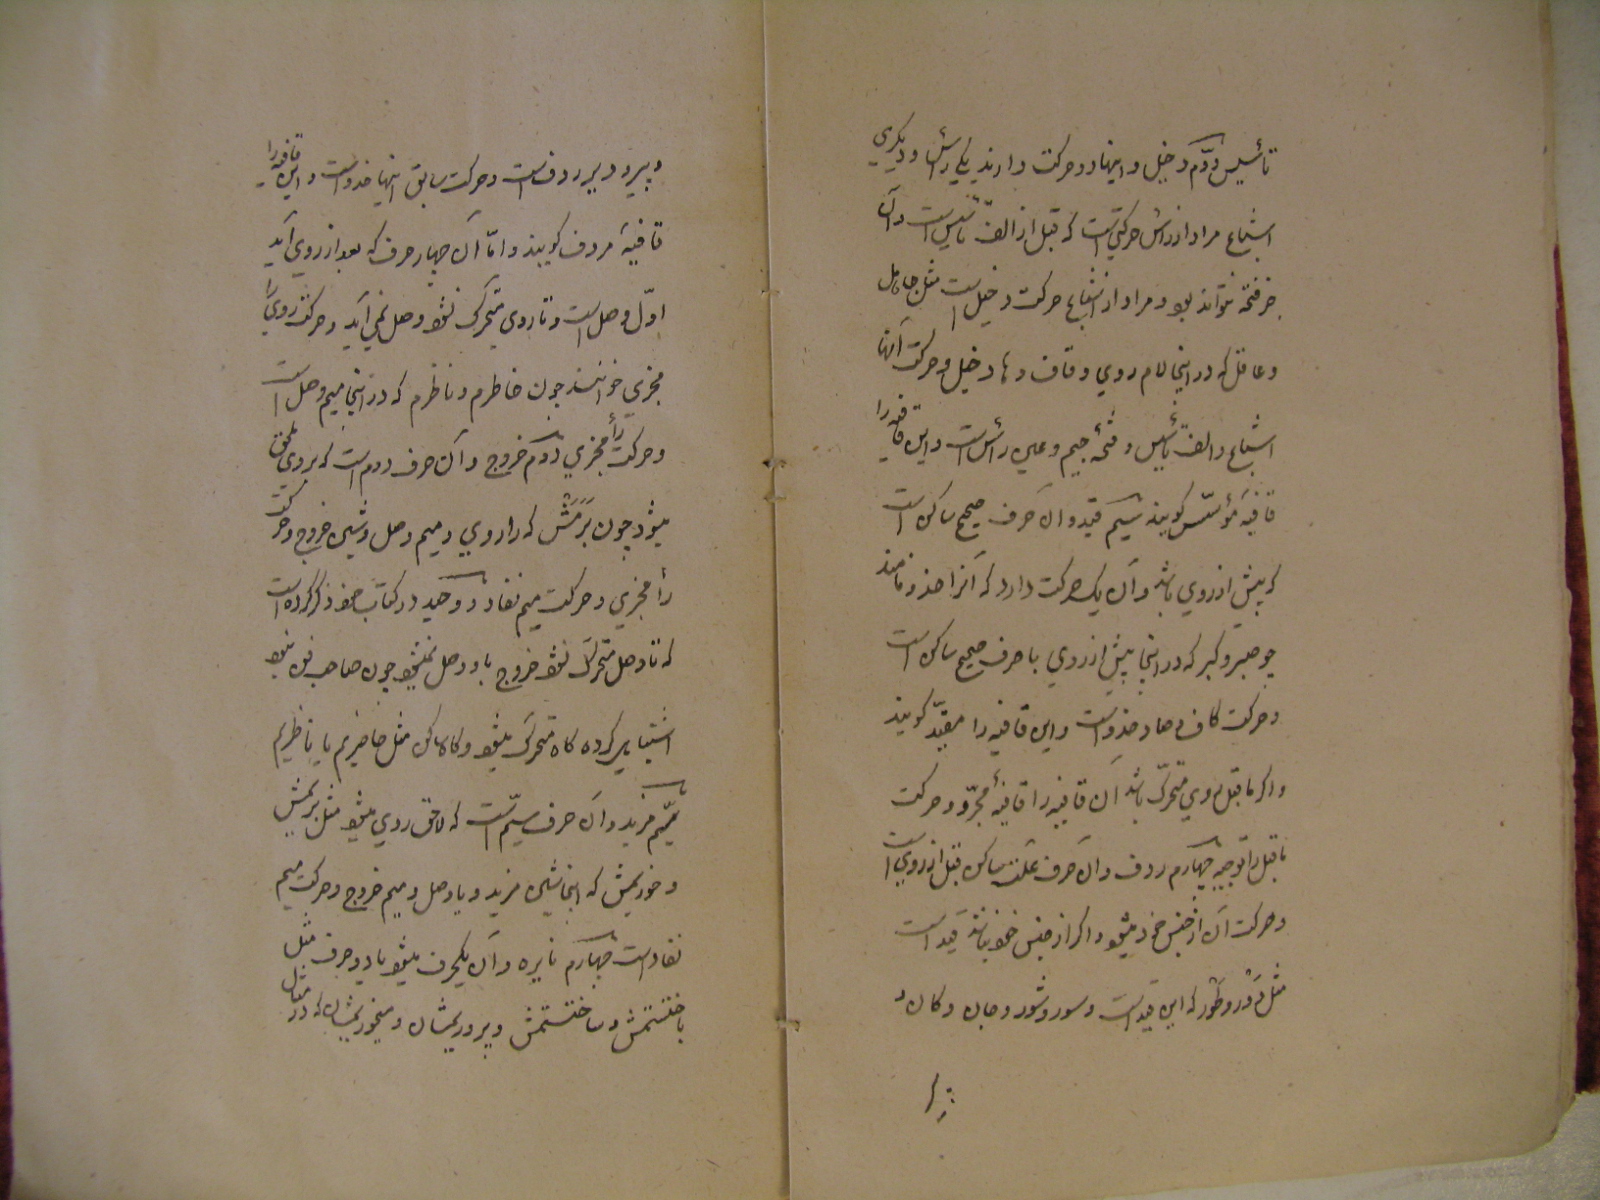 تأسیس دوّم دخیل و اینها دو حرکت دارند یکی رأس و دیگری
اشباع مراد از رأس حرکتی است که قبل از الف تأسیس است و آن
جز فتحه نتواند بود و مراد از اشباع حرکت دخیل است مثل جاهل
و عاقل که در اینجا لام روی و قاف و ها دخیل و حرکت آنها
اشباع و الف تأسیس و فتحهٔ جیم و عین رأس است و این قافیه را
قافیهٔ مؤسّس گویند سیّم قید و آن حرف صحیح ساکن است
که پیش از روی باشد و آن یک حرکت دارد که آنرا حذو نامند
چو صبر و کبر که در اینجا پیش از روی با حرف صحیح ساکن است
و حرکت کاف و صاد حذو است و این قافیه را مقیّد گویند
و اگر ماقبل روی متحرّک باشد آن قافیه را قافیهٔ مجرّد و حرکت
ماقبل را توجیه چهارم ردف و آن حرف علّت ساکن قبل از روی است
و حرکت آن از جنس خود میشود و اگر از جنس خود نباشد قید است
مثل دَور و طَور که این قید است و سور و شور و جان و کان و
و پیر و دیر ردف است و حرکت سابق اینها حذو است و این قافیه را
قافیهٔ مردف گویند و امّا آن چهار حرف که بعد از روی آید
اوّل وصل است و تا روی متحرک نشود وصل نمی آید و حرکت روی را
مجری خوانند چون خاطرم و ناظرم که در اینجا میم وصل است
و حرکت رأ مجری دوّم خروج و آن حرف دوم است که بروی ملحق
میشود چون بَرَمَش که را روی و میم وصل و شین خروج و حرکت
رأ مجری و حرکت میم نفاذ و وحید در کتاب خود ذکر کرده است
که تا وصل متحرک نشود خروج باو وصل نمیشود چون صاحب فن نبود
اشتباهی کرده گاه متحرک میشود و گاه ساکن مثل حاضریم یا ناظریم
سیّم مزید و آن حرف سیّم است که لاحق روی میشود مثل بریمش
و خوریمش که اینجا شین مزید و یا وصل و میم خروج و حرکت میم
نفاذ است چهارم نایره و آن یکحرف میشود یا دو حرف مثل
باختستمش و ساختستمش و پروریمشان و میخوریمشان که در مثال